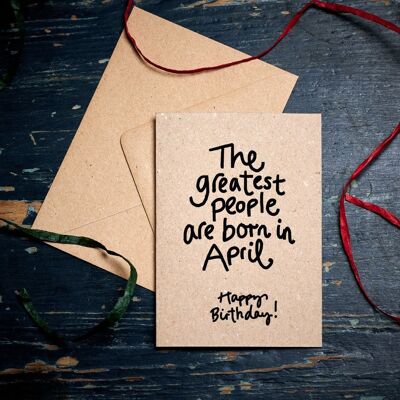 The
greatest
people
are born in
April
Happy
Birthday!